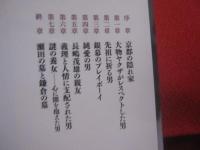 序章 京都の隠れ家
第一章 大物ヤクザがリスペクトした男
第二章 先祖に祈る男
第三章 銀幕のプレイボーイ
第四章 純愛の男
第五章 長嶋茂雄の親友
第六章 義理と人情に支配された男
第七章 謎の養女――心に闇を抱えた男
終章 瀬田の墓と鎌倉の墓